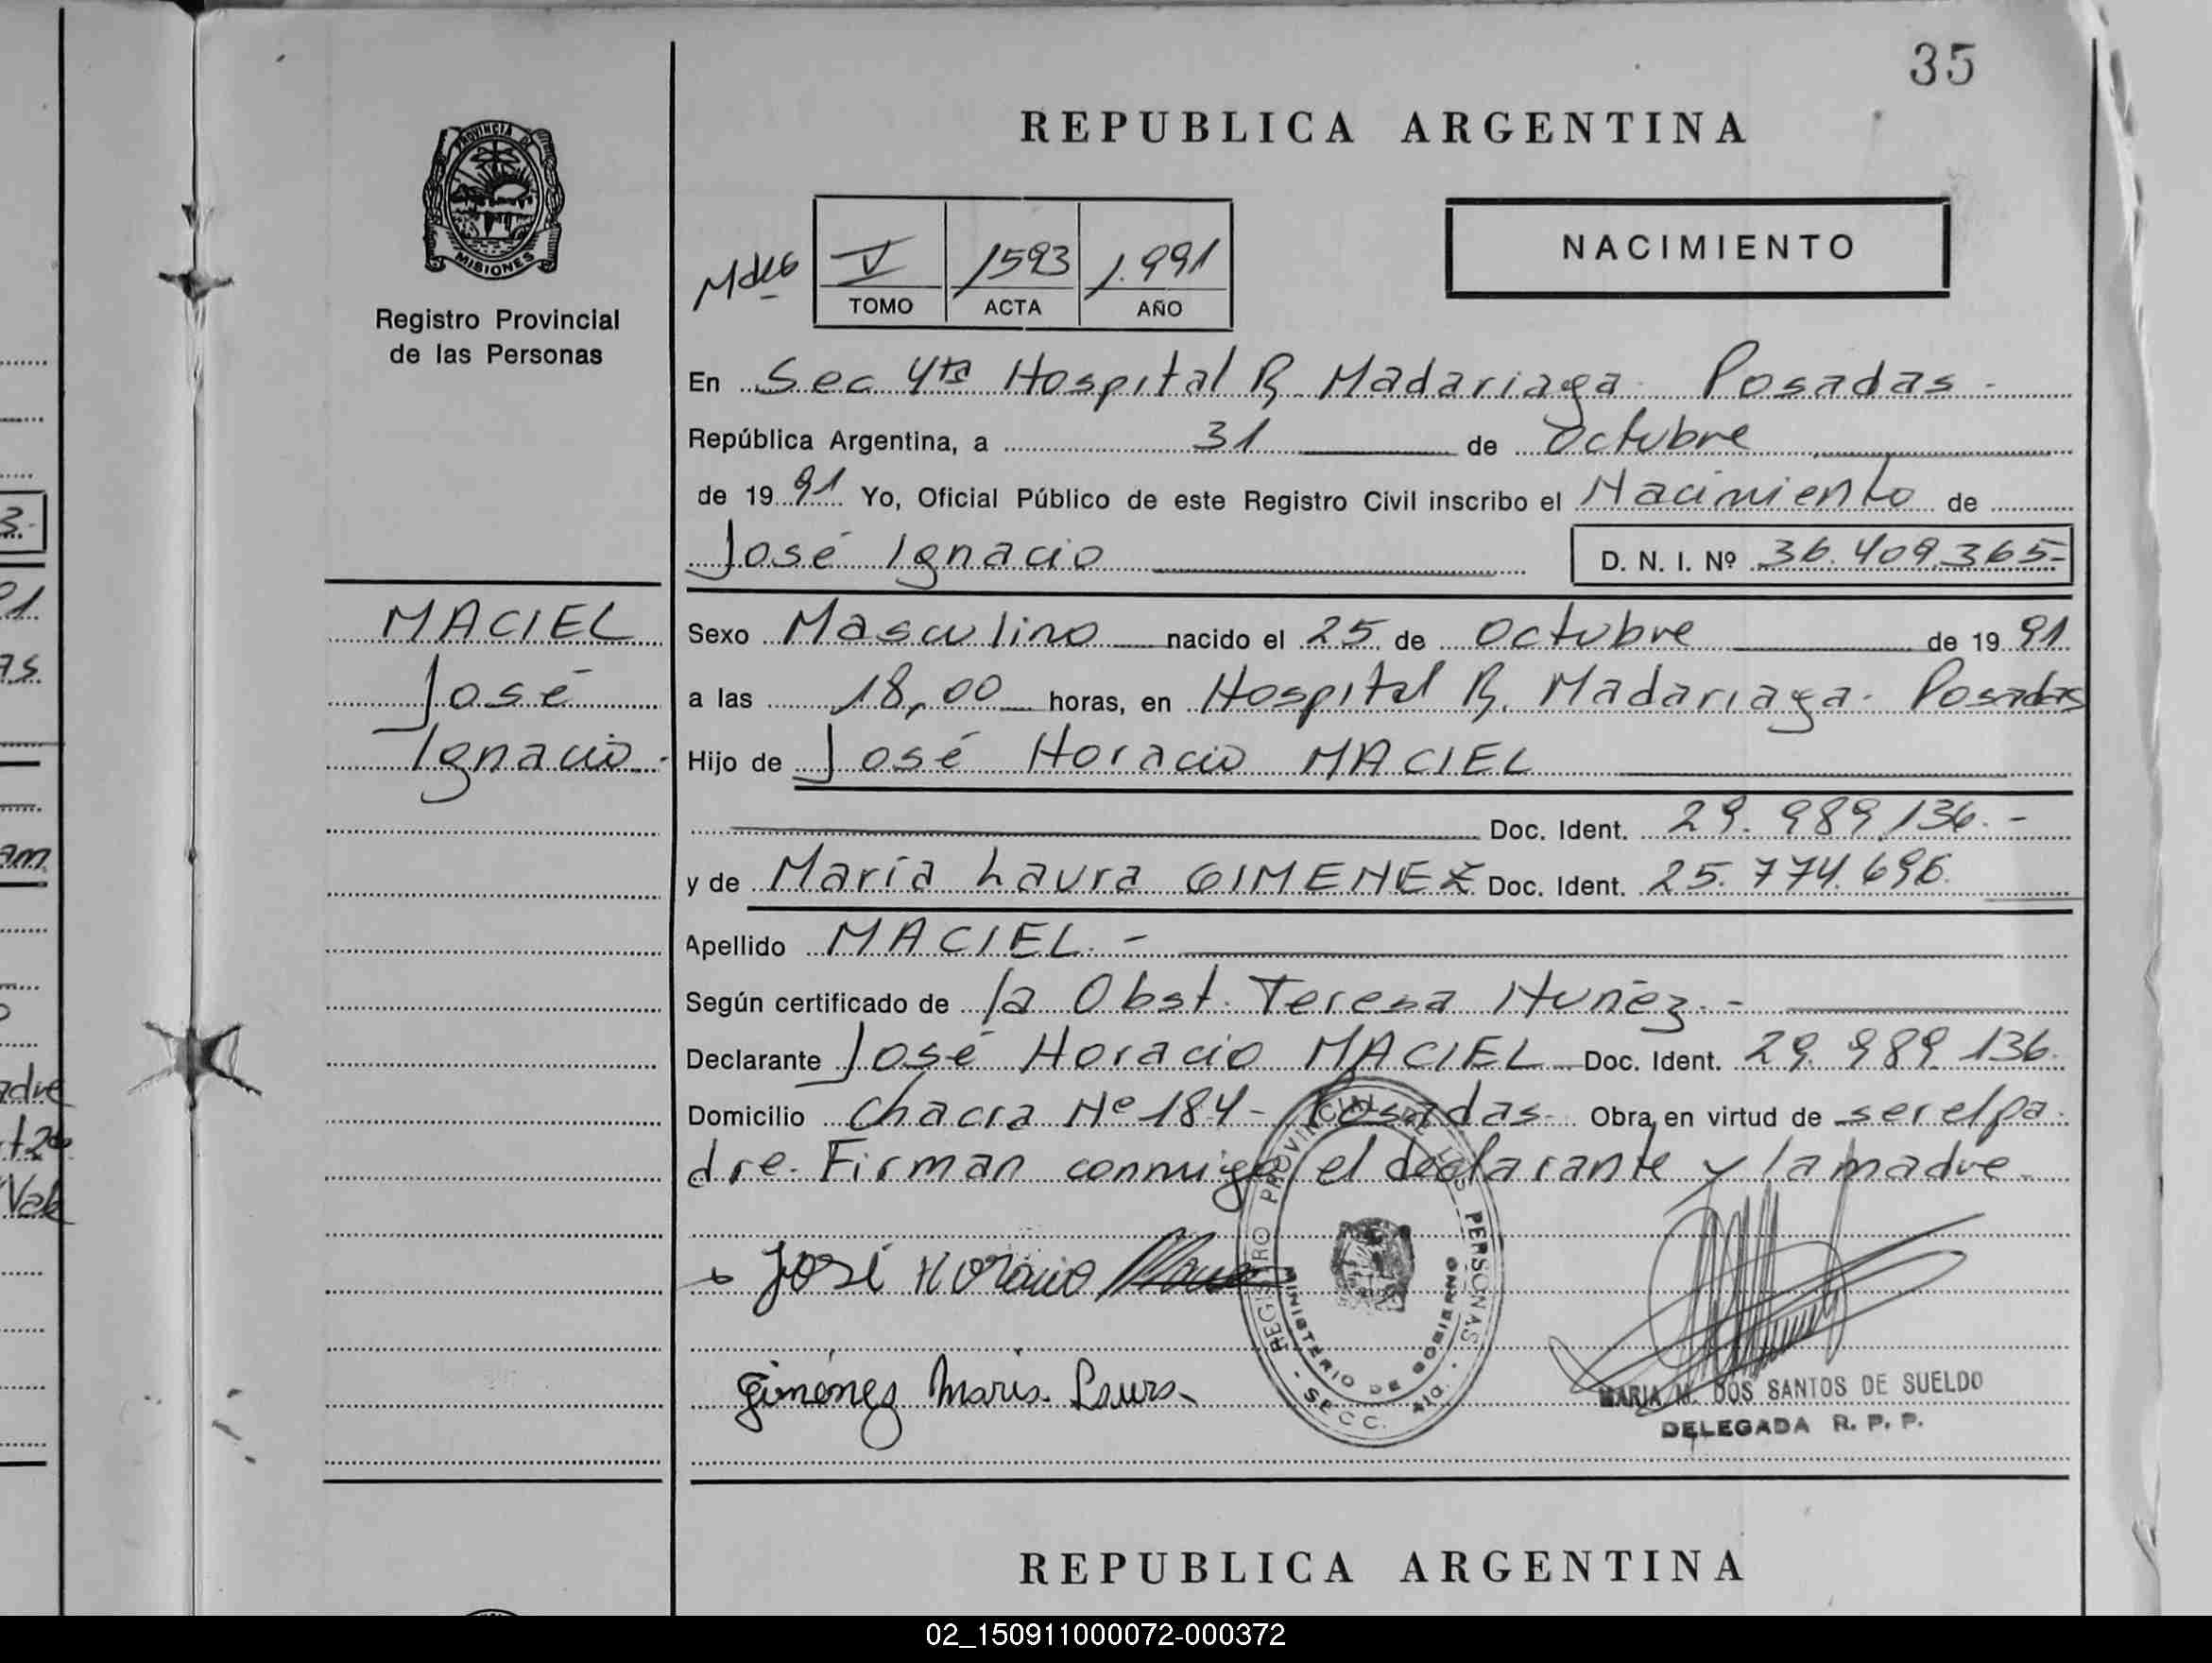 35
PROVINCIA DE
MISIONES
Registro Provincial
de las Personas
REPUBLICA ARGENTINA
V 1593 1.991
TOMO ACTA AÑO
NACIMIENTO
En Sec 4ta Hospital R. Madariaga. Posadas -
República Argentina, a 31 de Octubre
de 19 91 Yo, Oficial Público de este Registro Civil inscribo el Nacimiento de
José Ignacio D. N. I. Nº 36.409.365-
MACIEL
José
Ignacio.-
Sexo Masculino nacido el 25 de Octubre de 19 91
a las 18,00 horas, en Hospital R. Madariaga. Posadas
Hijo de José Horacio MACIEL
Doc. Ident. 29.989.136.-
y de María Laura GIMENEZ Doc. Ident. 25.774.696.
Apellido MACIEL.-
Según certificado de la Obst. Teresa Nuñez.-
Declarante José Horacio MACIEL Doc. Ident. 29.989.136.
Domicilio Chacra Nº 184- Posadas- Obra en virtud de ser el pa-
dre. Firman conmigo el declarante y la madre.
José Horacio
Giménez Maria Laura
REGISTRO PROVINCIAL DE LAS PERSONAS
MINISTERIO DE GOBIERNO
- SECC. 4ta. -
MARIA M. DOS SANTOS DE SUELDO
DELEGADA R. P. P.
REPUBLICA ARGENTINA
02_150911000072-000372